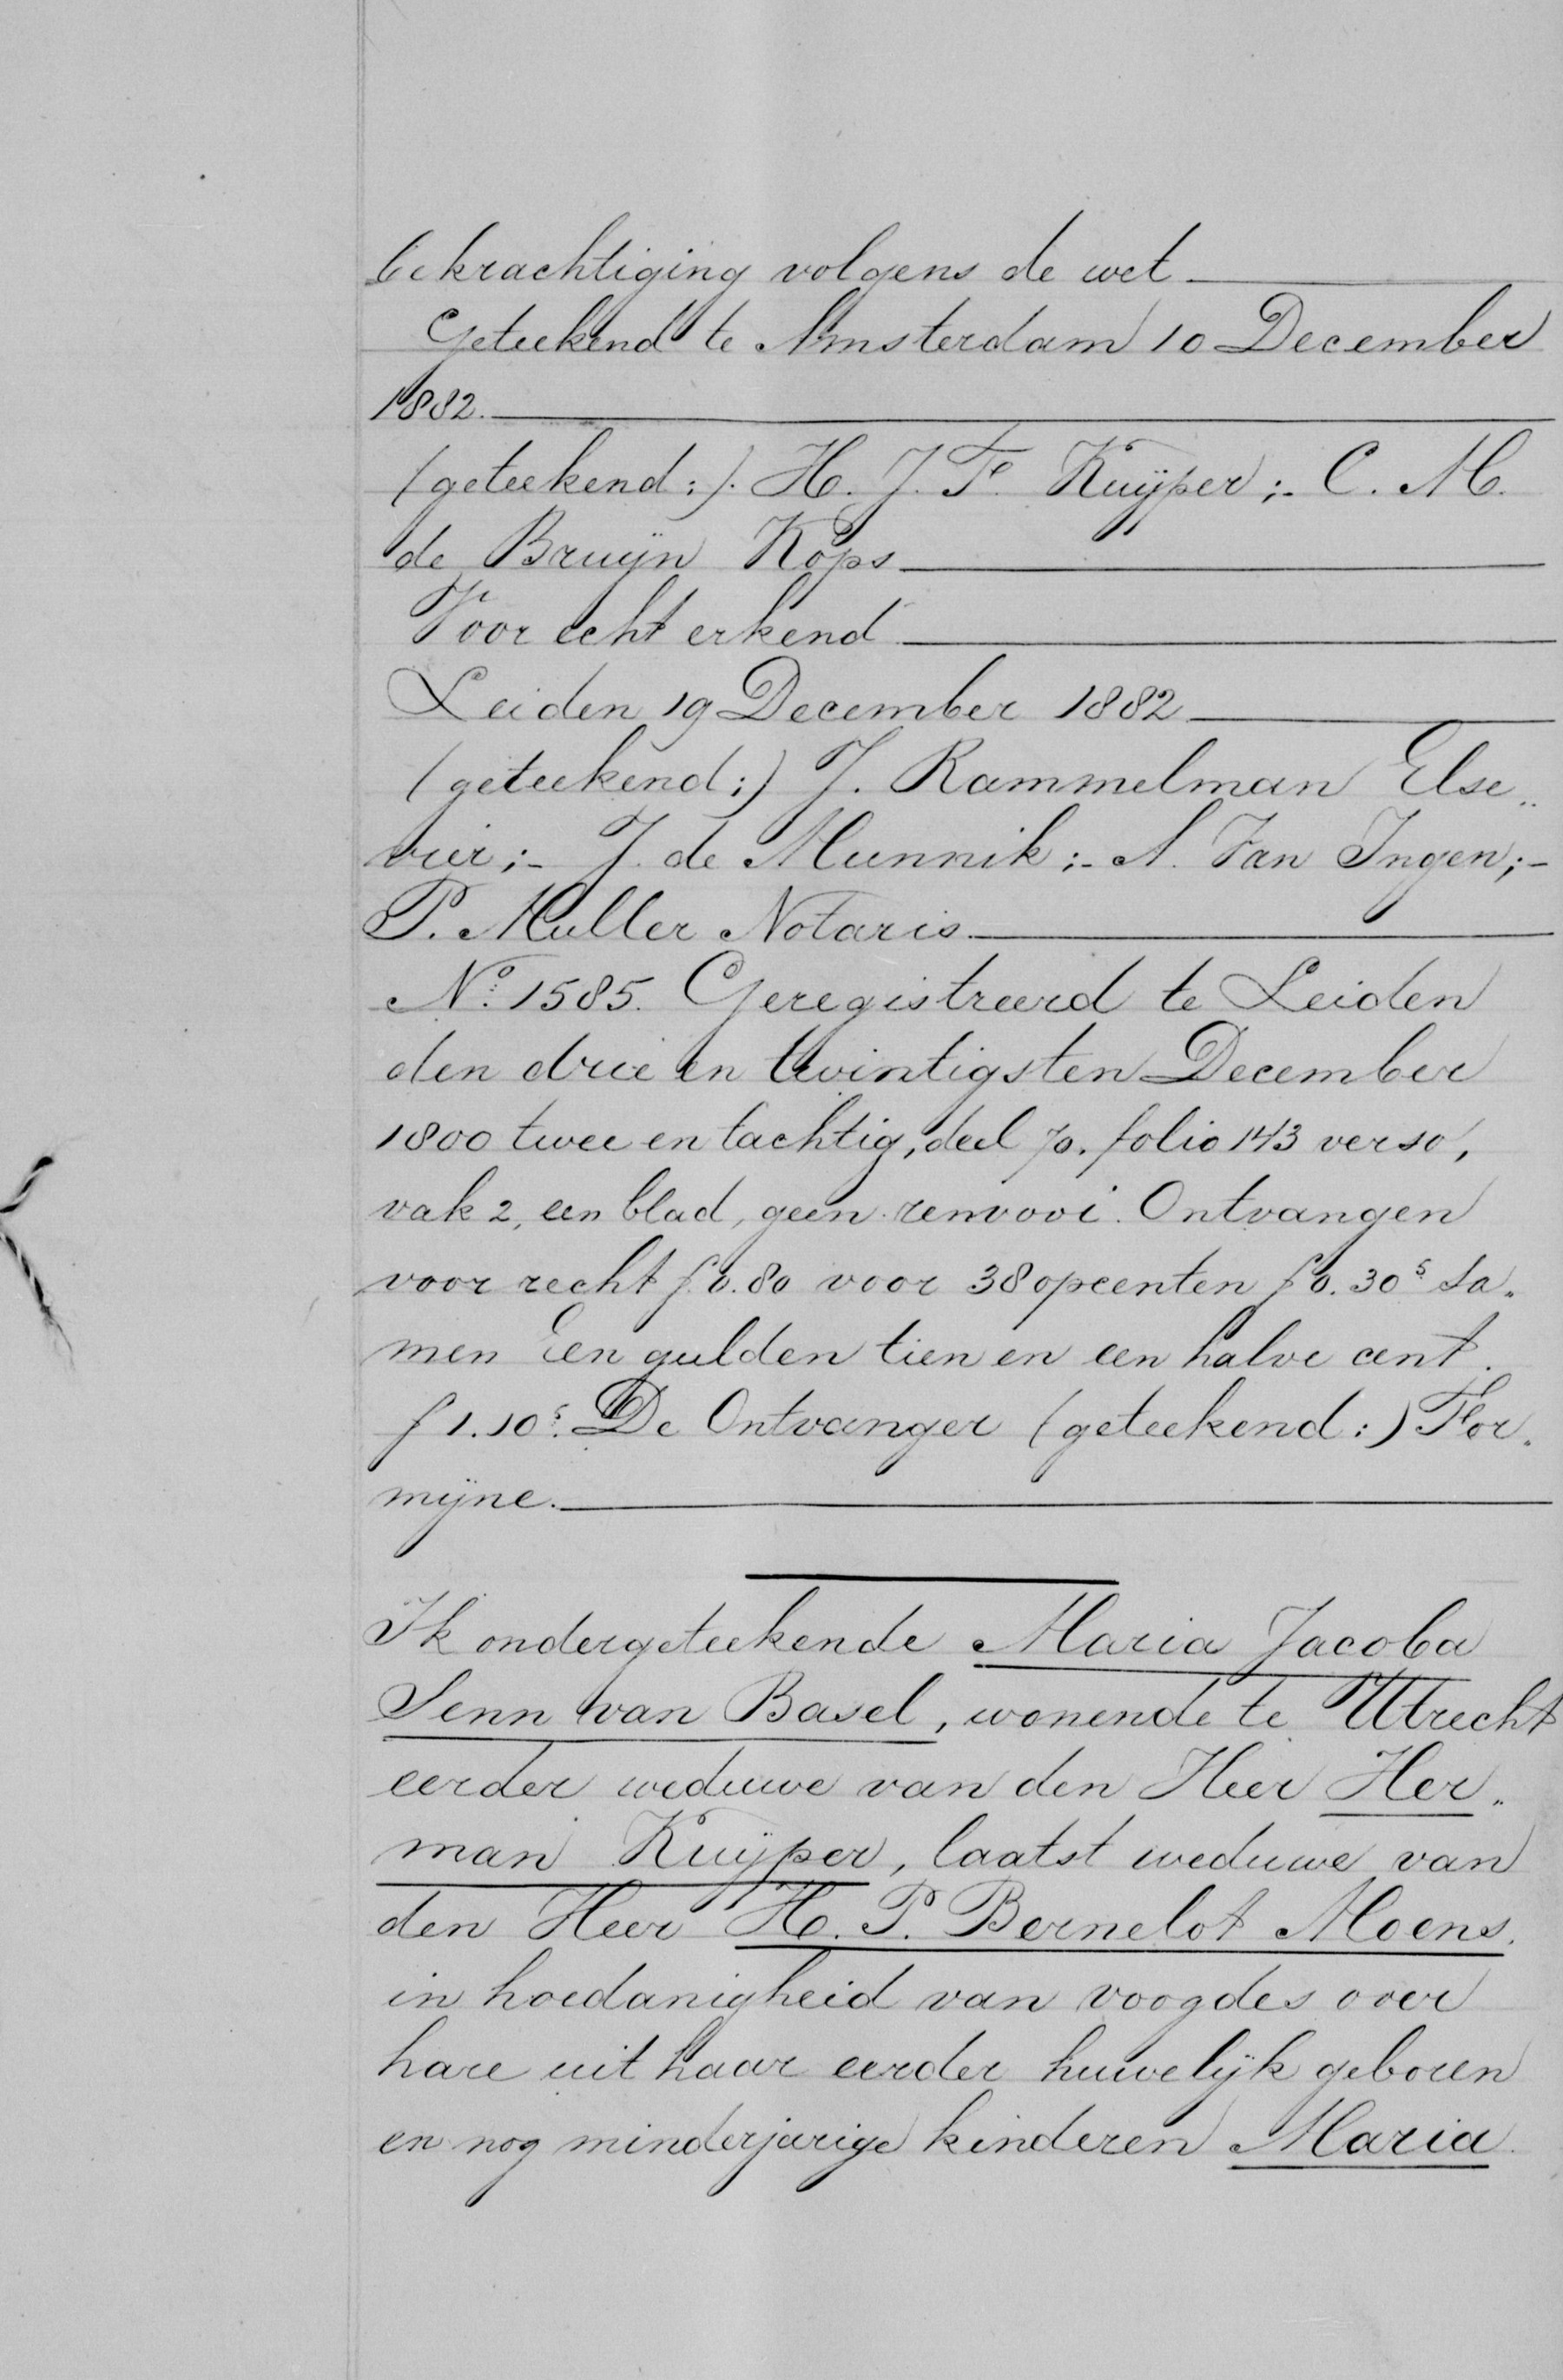 bekrachtiging volgens de wet
Geteekend te Amsterdam 10 December
1882.
(geteekend:). H. J. F. Kuÿper;- C. M.
de Bruÿn Kops
Voor echt erkend
Leiden 19 December 1882
(geteekend:) J. Rammelman Else„
vier;- J. de Munnik;- A. Van Ingen;-
P. Muller Notaris.
No. 1585. Geregistreerd te Leiden
den drie en twintigsten December
1800 twee en tachtig, deel 70. folio 143 verso,
vak 2, een blad, geen renvooi. Ontvangen
voor recht f 0.80 voor 38 opcenten f 0.30⁵ Sa„
men Een gulden tien en een halve cent.
f 1.10⁵. De Ontvanger (geteekend:) For„
mÿne.
Ik ondergeteekende Maria Jacoba
Senn van Basel, wonende te Utrecht
eerder weduwe van den Heer Her„
man Kuÿper, laatst weduwe van
den Heer H. P. Bernelot Moens.
in hoedanigheid van voogdes over
hare uit haar eerder huwelÿk geboren
en nog minderjarige kinderen Maria